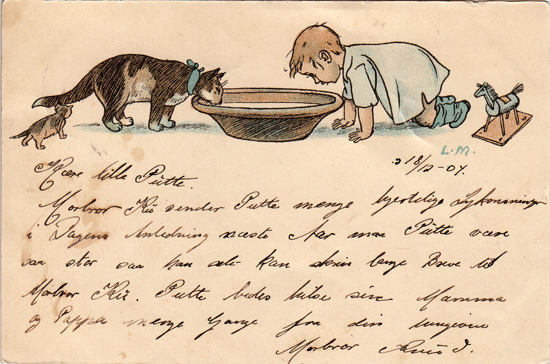 L.M.
18/2-04.
Kære lille Pütte.
Morbror sender Putte mange hjertelige Lykønskninger
i Dagens Anledning næste Aar maa Pütte være
saa stor saa han selv kan skrive lange Breve til
Morbror Putte bedes hilse sin Mamma
og Pappa mange Gange fra din
Morbror